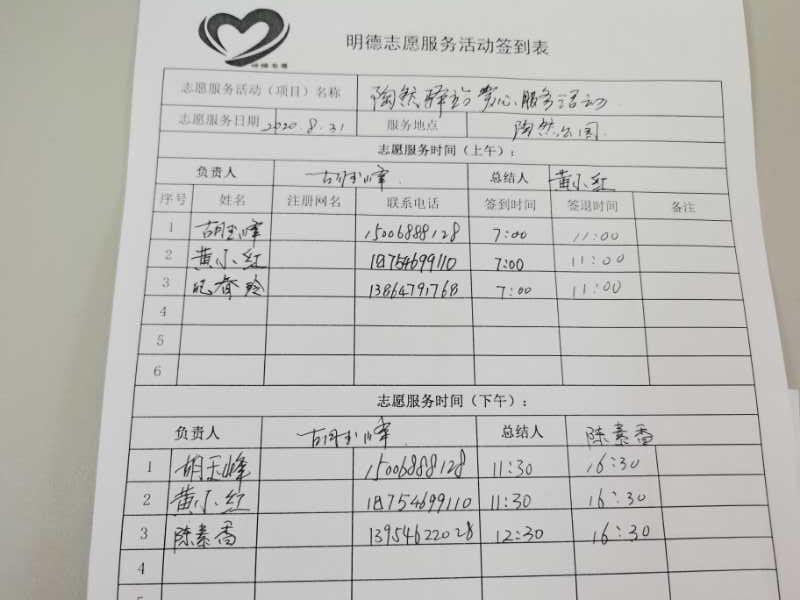 明德志愿服务活动签到表
志愿服务活动（项目）名称 陶然驿站爱心服务活动
志愿服务日期 2020.8.31 服务地点 陶然公园
志愿服务时间（上午）：
负责人 胡玉峰 总结人 黄小红
序号 姓名 注册网名 联系电话 签到时间 签退时间 备注
1 胡玉峰 15006888128 7:00 11:00
2 黄小红 18754699110 7:00 11:00
3 纪春玲 13864791768 7:00 11:00
4
5
6
志愿服务时间（下午）：
负责人 胡玉峰 总结人 陈素香
1 胡玉峰 15006888128 11:30 16:30
2 黄小红 18754699110 11:30 16:30
3 陈素香 13954622028 12:30 16:30
4
5